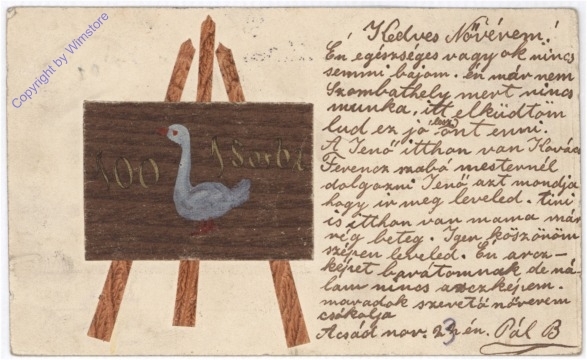 Copyright by Wimstore
100
Kedves Nővérem!
Én egészséges vagyok nincs
semmi bajom. én már nem
Szombathely mert nincs
munka, itt elküdtöm
lud ez jó lesz önt enni.
A Jenő itthon van Kovács
Ferencz szabó mesternél
dolgozni Jenő azt mondja
hogy ir meg leveled. tini
is itthon van mama már
rég beteg. Igen köszönöm
szépen leveled. Én arcz-
képet barátomnak de ná-
lam nincs arczképem.
maradok szerető nővérem
csókolja
Acsád nov. én. Pál B